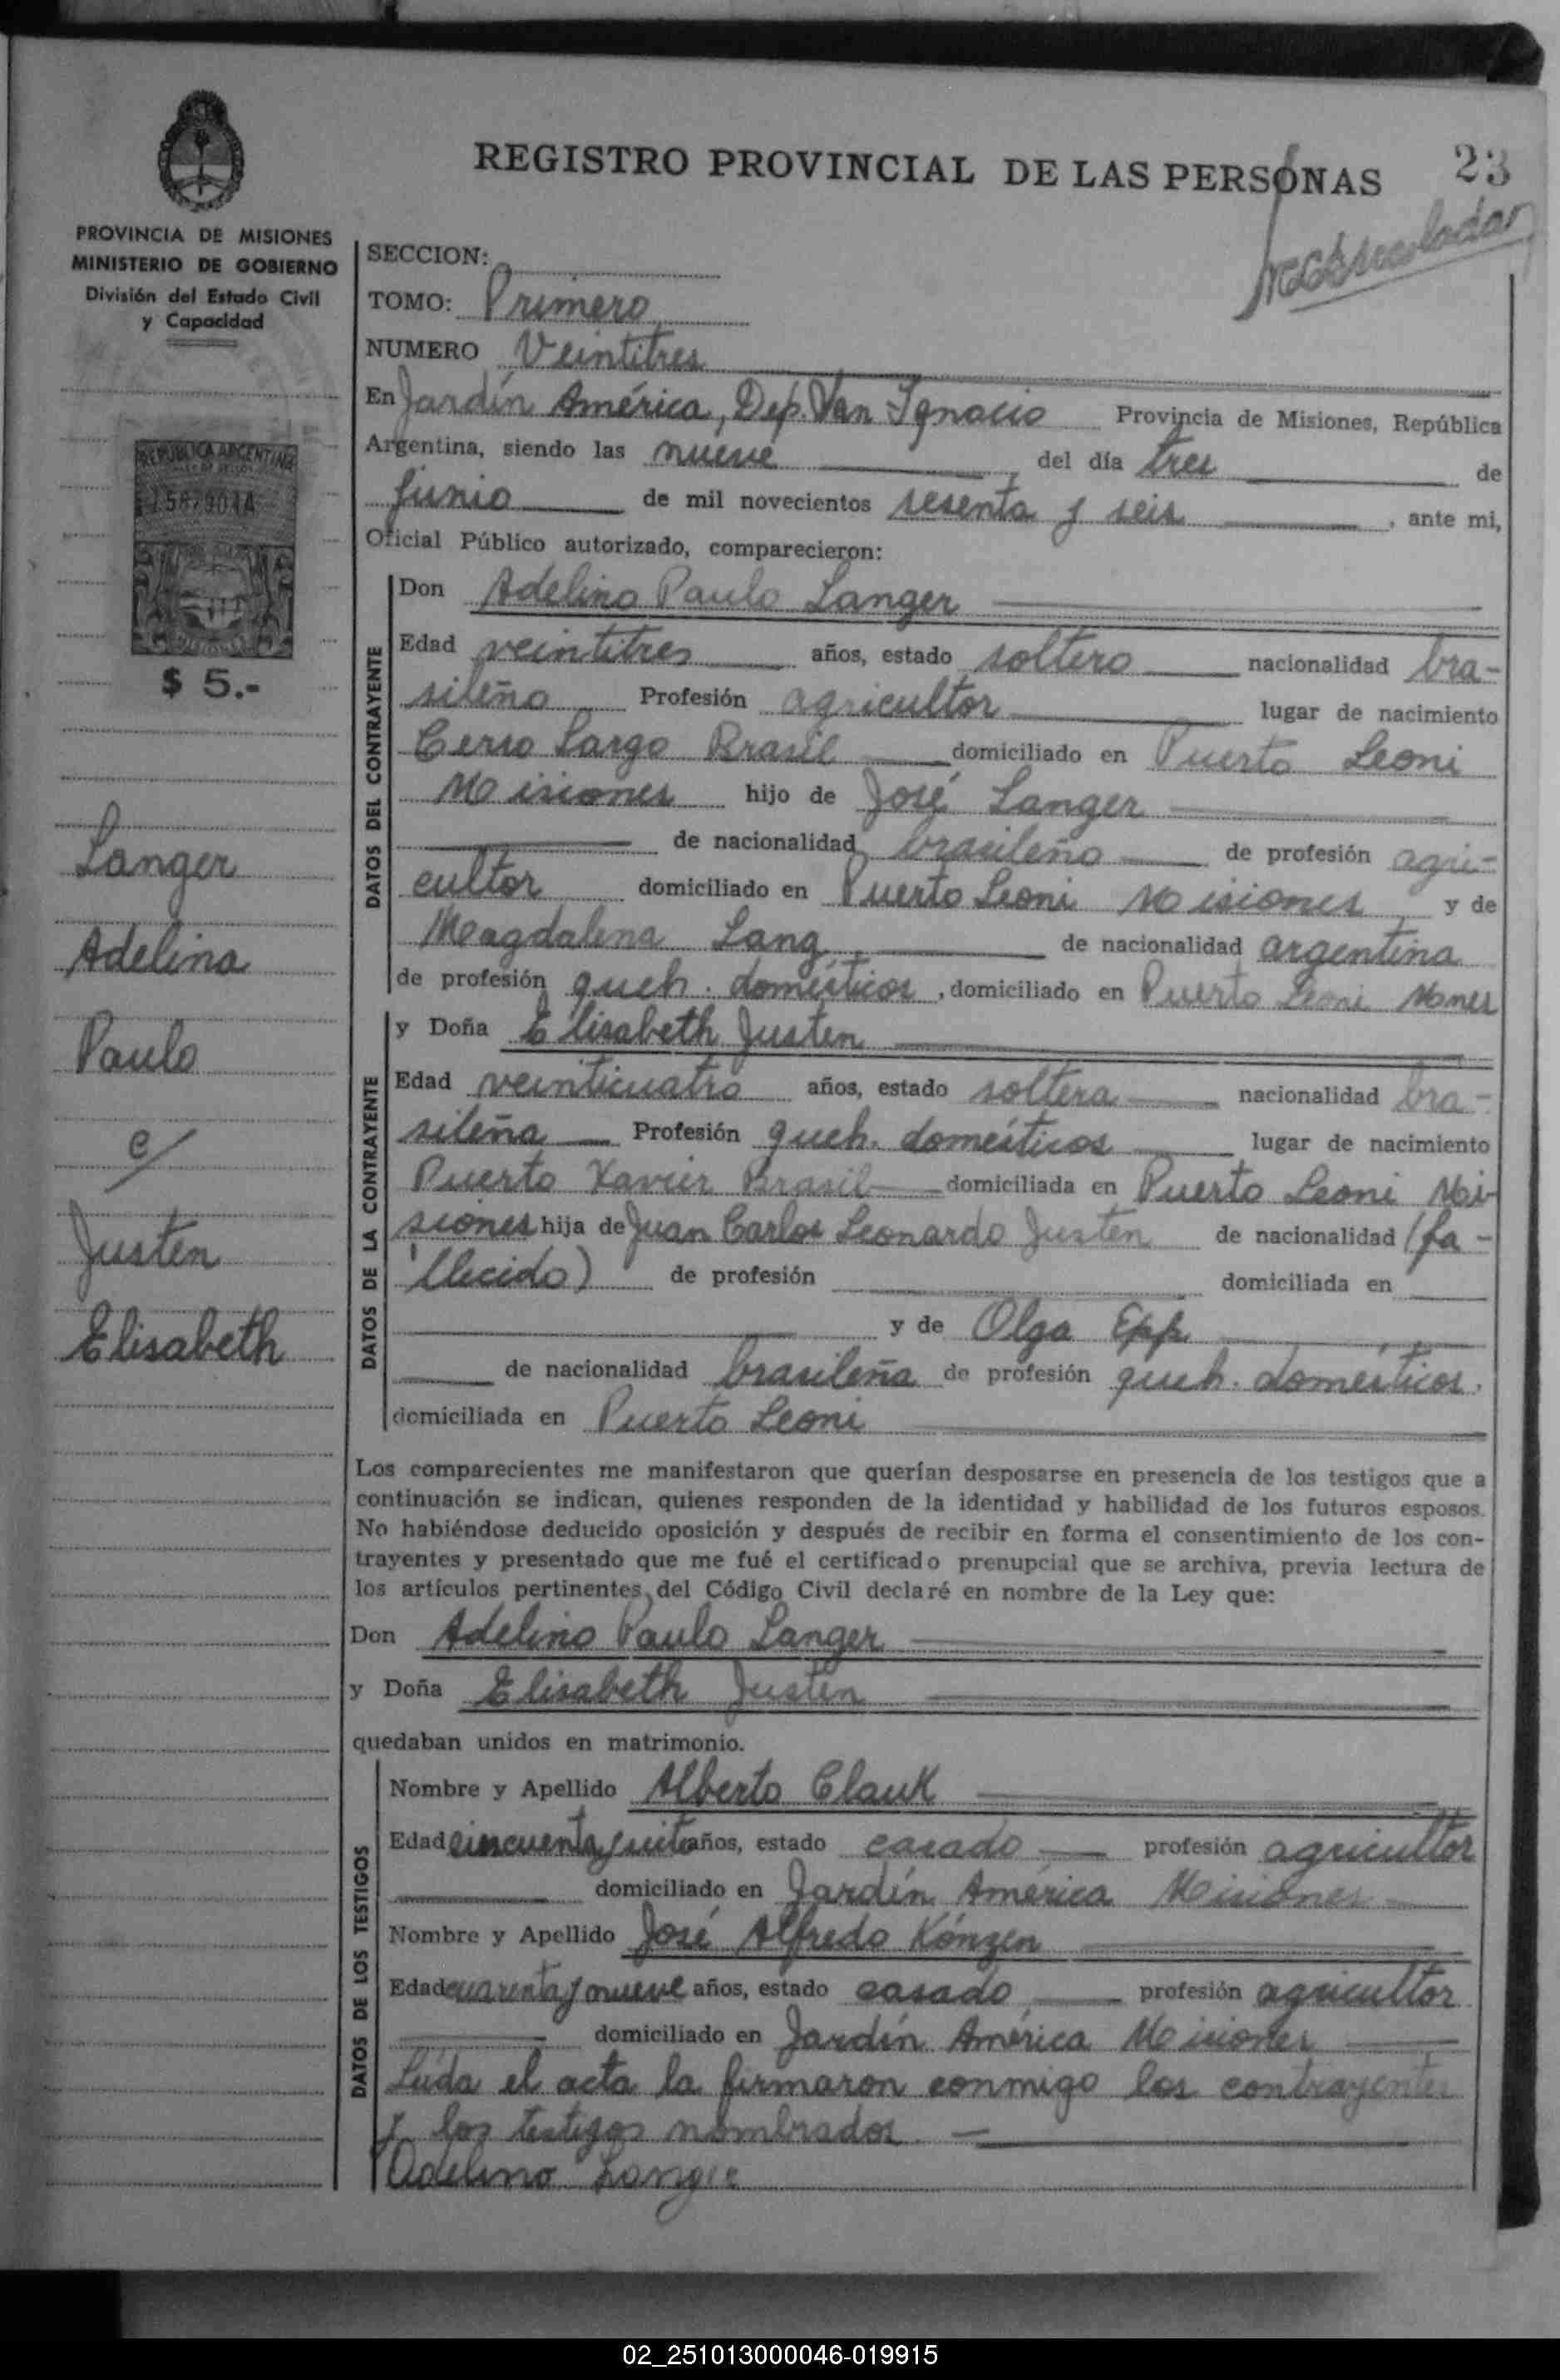 REGISTRO PROVINCIAL DE LAS PERSONAS
23
PROVINCIA DE MISIONES
MINISTERIO DE GOBIERNO
División del Estado Civil
y Capacidad
REPUBLICA ARGENTINA
$ 5.-
Langer
Adelina
Paulo
c/
Justen
Elisabeth
SECCION:
TOMO: Primero
NUMERO Veintitres
En Jardín América, Dep. San Ignacio Provincia de Misiones, República
Argentina, siendo las nueve del día tres de
junio de mil novecientos sesenta y seis, ante mi,
Oficial Público autorizado, comparecieron:
DATOS DEL CONTRAYENTE
Don Adelino Paulo Langer
Edad veintitres años, estado soltero nacionalidad bra-
sileño Profesión agricultor lugar de nacimiento
Cerro Largo Brasil domiciliado en Puerto Leoni
Misiones hijo de José Langer
de nacionalidad brasileño de profesión agri-
cultor domiciliado en Puerto Leoni Misiones y de
Magdalena Lang de nacionalidad argentina
de profesión queh. domésticos, domiciliado en Puerto Leoni Mones
DATOS DE LA CONTRAYENTE
y Doña Elisabeth Justen
Edad veinticuatro años, estado soltera nacionalidad bra-
sileña Profesión queh. domésticos lugar de nacimiento
Puerto Xavier Brasil domiciliada en Puerto Leoni Mi-
siones hija de Juan Carlos Leonardo Justen de nacionalidad (fa-
llecido) de profesión domiciliada en
y de Olga Epp
de nacionalidad brasileña de profesión queh. domésticos.
domiciliada en Puerto Leoni
Los comparecientes me manifestaron que querían desposarse en presencia de los testigos que a
continuación se indican, quienes responden de la identidad y habilidad de los futuros esposos.
No habiéndose deducido oposición y después de recibir en forma el consentimiento de los con-
trayentes y presentado que me fué el certificado prenupcial que se archiva, previa lectura de
los artículos pertinentes del Código Civil declaré en nombre de la Ley que:
Don Adelino Paulo Langer
y Doña Elisabeth Justen
quedaban unidos en matrimonio.
DATOS DE LOS TESTIGOS
Nombre y Apellido Alberto Clauk
Edad cincuenta y años, estado casado profesión agricultor
domiciliado en Jardín América Misiones
Nombre y Apellido José Alfredo Kónzen
Edad cuarenta y nueve años, estado casado profesión agricultor
domiciliado en Jardín América Misiones
Leída el acta la firmaron conmigo los contrayentes
y los testigos nombrados.
Adelino Langer
02_251013000046-019915